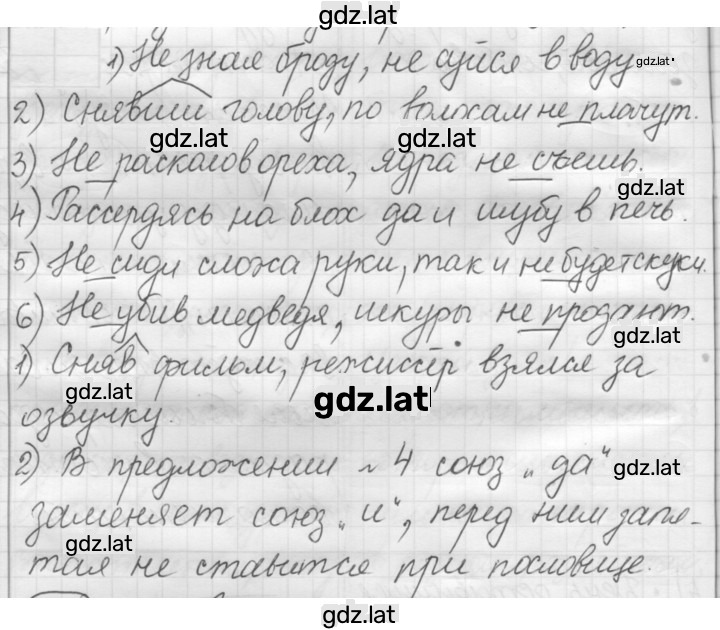 gdz.lat
1) Не зная броду, не суйся в воду gdz.lat.
2) Снявши голову, по волосам не плачут.
gdz.lat gdz.lat
3) Не расколов ореха, ядра не съешь.
gdz.lat
4) Рассердясь на блох да и шубу в печь.
5) Не сиди сложа руки, так и не будет скуки.
6) Не убив медведя, шкуры не продают.
gdz.lat
1) Сняв фильм, режиссёр взялся за
gdz.lat gdz.lat
озвучку.
2) В предложении ~ 4 союз „да“ gdz.lat
заменяет союз „и“, перед ним запя-
gdz.lat
тая не ставится при пословице.
gdz.lat